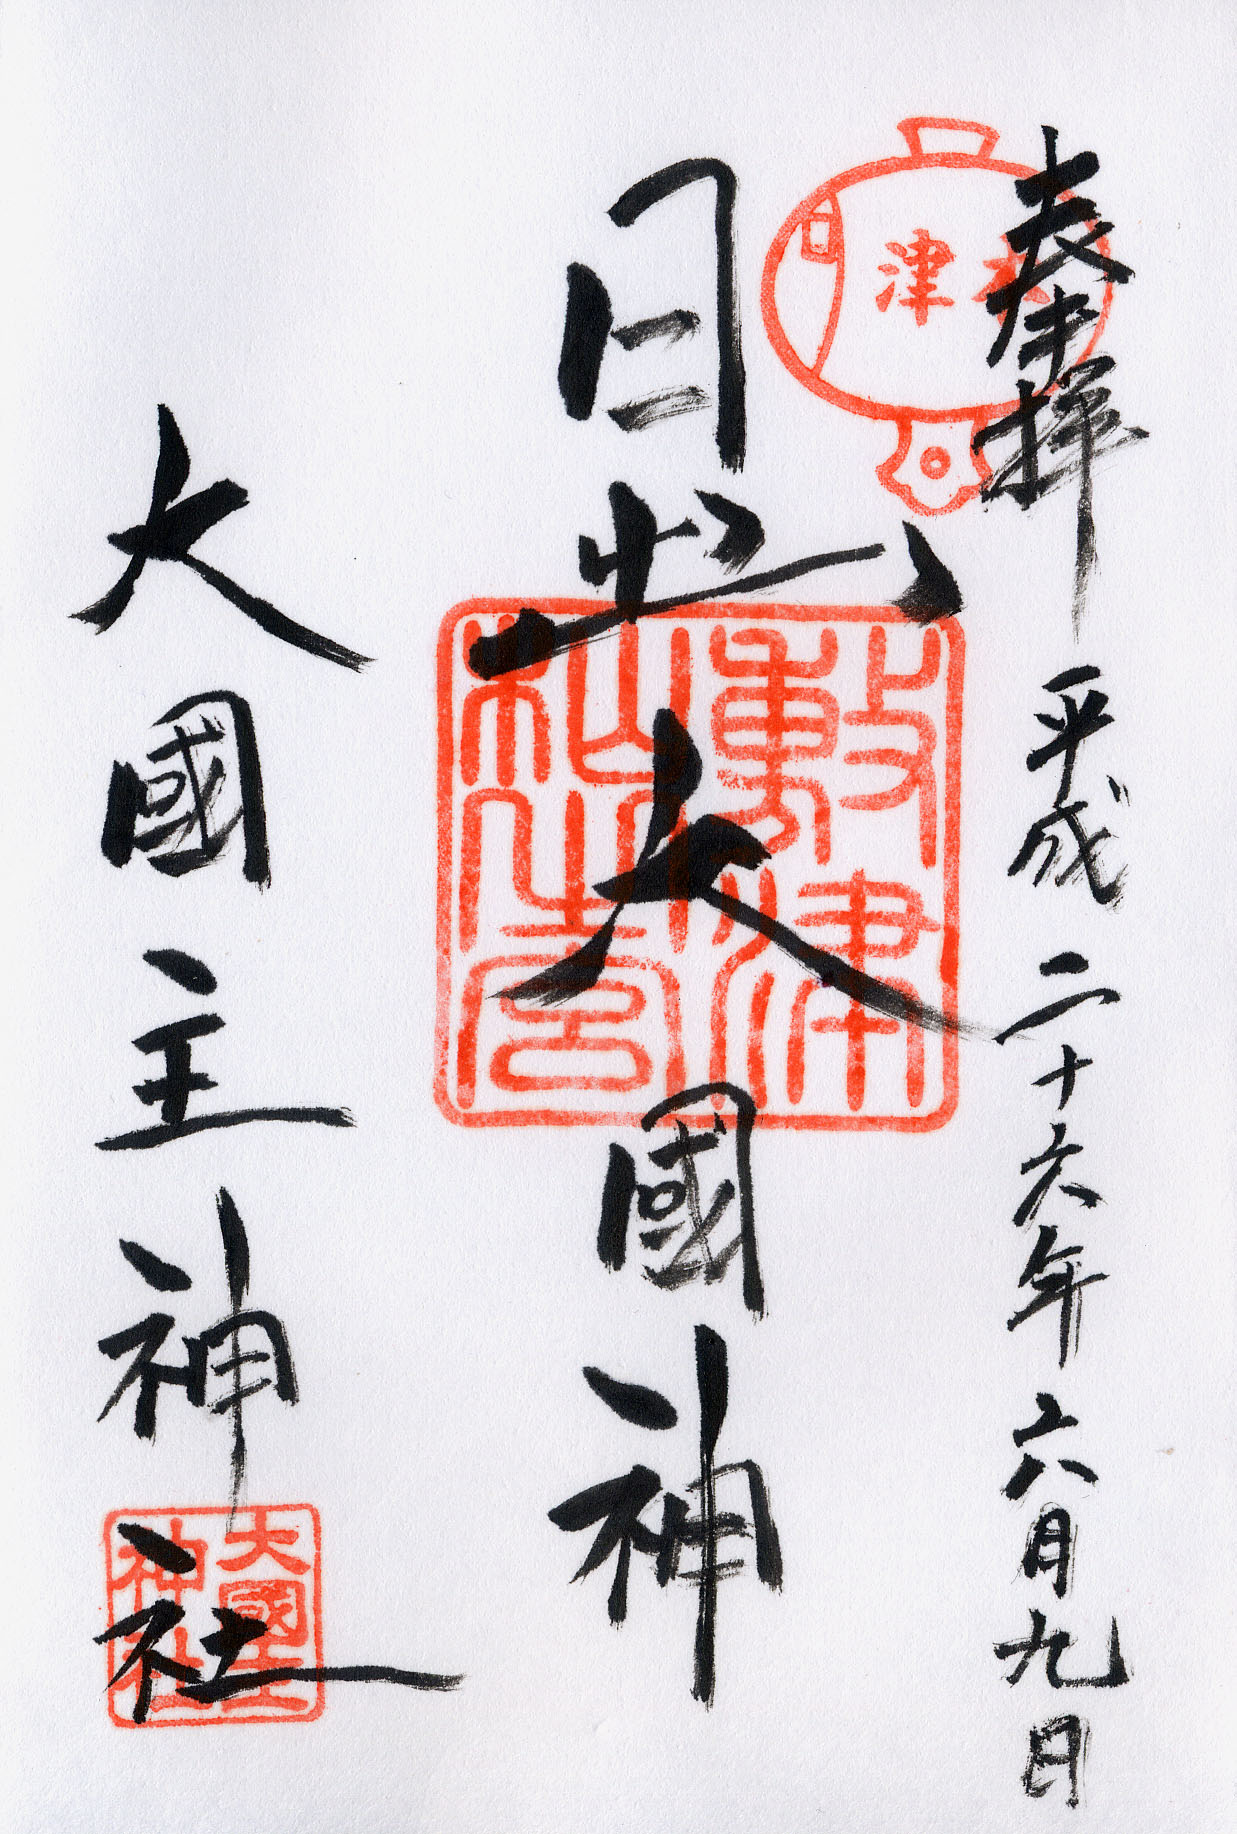 奉拝 平成二十六年六月九日
津
日出大國神
敷津
松之宮
大國主神社
大國主
神社